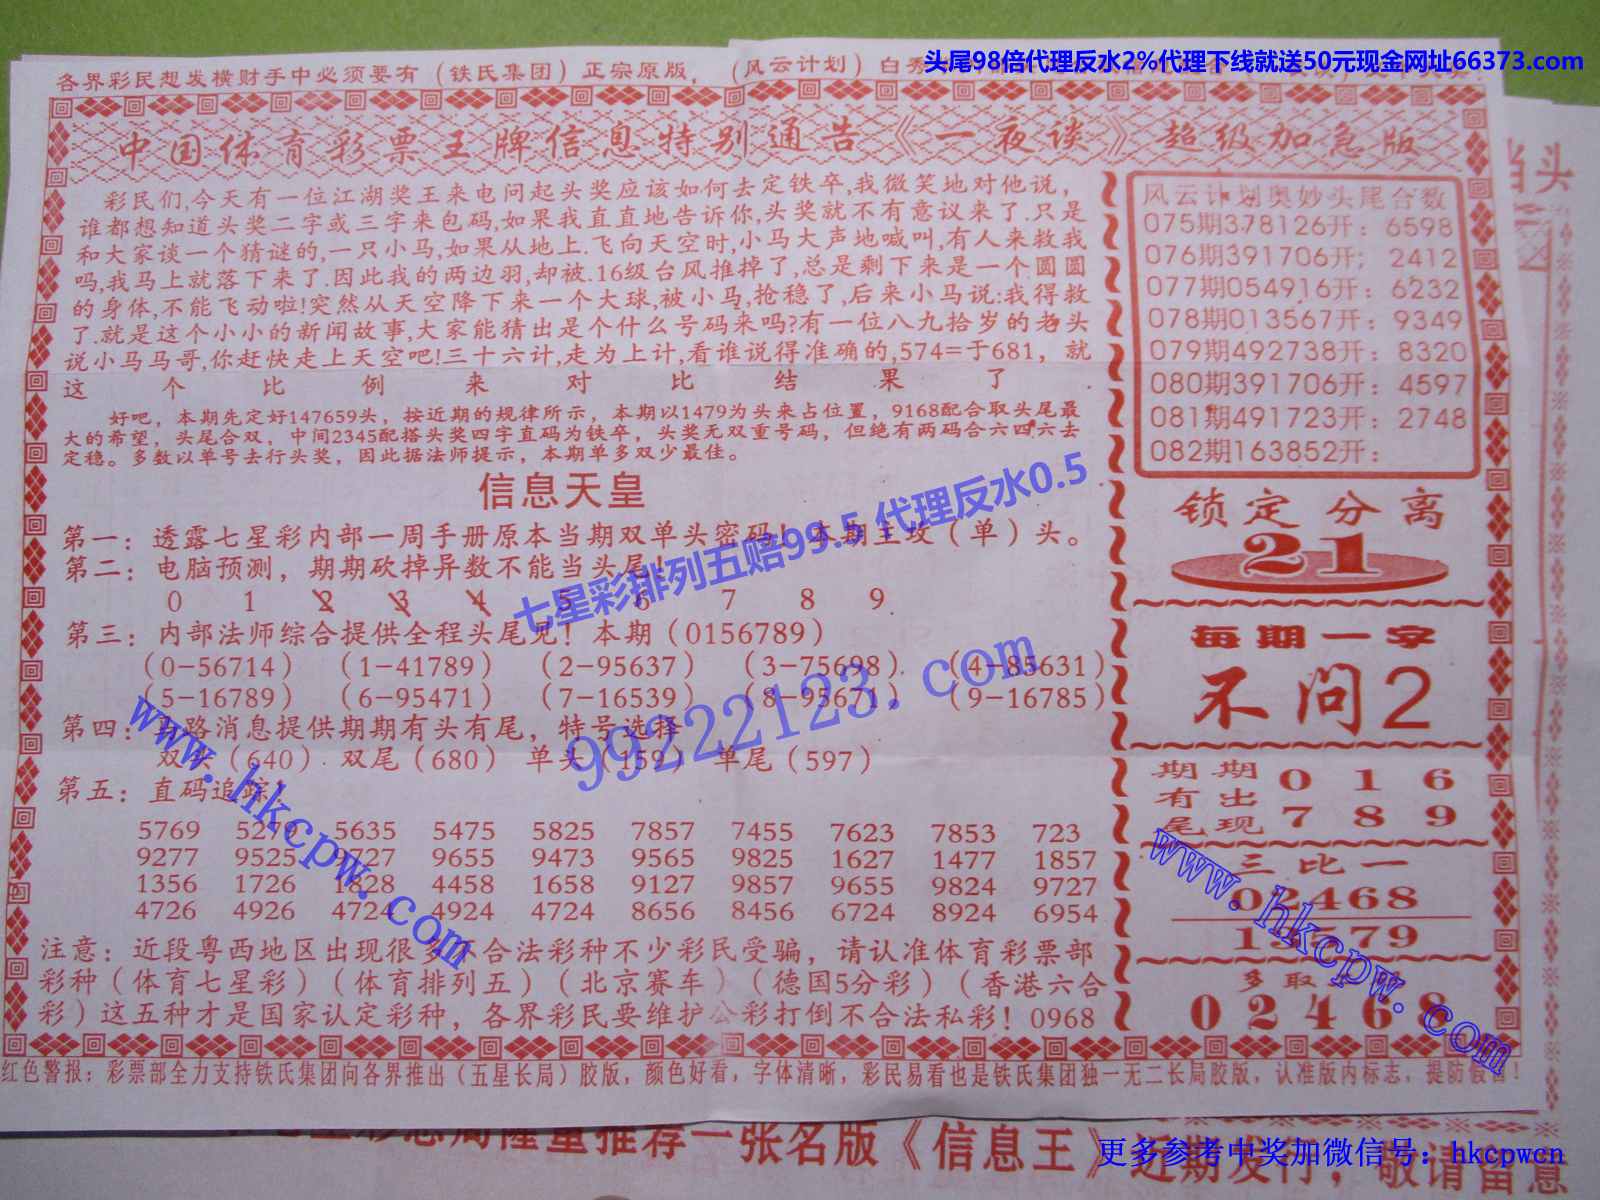 头尾98倍代理反水2%代理下线就送50元现金网址66373.com
各界彩民想发横财手中必须要有（铁氏集团）正宗原版，（风云计划）白秀
中国体育彩票王牌信息特别通告《一夜谈》超级加急版
彩民们,今天有一位江湖奖王来电问起头奖应该如何去定铁卒,我微笑地对他说，
谁都想知道头奖二字或三字来包码,如果我直直地告诉你,头奖就不有意议来了.只是
和大家谈一个猜谜的,一只小马,如果从地上.飞向天空时,小马大声地喊叫,有人来救我
吗,我马上就落下来了.因此我的两边羽,却被.16级台风推掉了,总是剩下来是一个圆圆
的身体,不能飞动啦!突然从天空降下来一个大球,被小马,抢稳了,后来小马说:我得救
了.就是这个小小的新闻故事,大家能猜出是个什么号码来吗?有一位八九拾岁的老头
说小马马哥,你赶快走上天空吧!三十六计,走为上计,看谁说得准确的,574=于681，就
这个比例来对比结果了
好吧，本期先定好147659头，按近期的规律所示，本期以1479为头来占位置，9168配合取头尾最
大的希望，头尾合双，中间2345配搭头奖四字直码为铁卒，头奖无双重号码，但绝有两码合六四六去
定稳。多数以单号去行头奖，因此据法师提示，本期单多双少最佳。
信息天皇
第一：透露七星彩内部一周手册原本当期双单头密码！本期主攻（单）头。
第二：电脑预测，期期砍掉异数不能当头尾！
0 1 2 3 4 5 6 7 8 9
第三：内部法师综合提供全程头尾见！本期（0156789）
（0-56714）（1-41789）（2-95637）（3-75698）（4-85631）
（5-16789）（6-95471）（7-16539）（8-95671）（9-16785）
第四：马路消息提供期期有头有尾，特号选择
双头（640）双尾（680）单头（159）单尾（597）
第五：直码追踪！
5769 5279 5635 5475 5825 7857 7455 7623 7853 723
9277 9525 9727 9655 9473 9565 9825 1627 1477 1857
1356 1726 1828 4458 1658 9127 9857 9655 9824 9727
4726 4926 4724 4924 4724 8656 8456 6724 8924 6954
注意：近段粤西地区出现很多不合法彩种不少彩民受骗，请认准体育彩票部
彩种（体育七星彩）（体育排列五）（北京赛车）（德国5分彩）（香港六合
彩）这五种才是国家认定彩种，各界彩民要维护公彩打倒不合法私彩！0968
风云计划奥妙头尾合数
075期378126开：6598
076期391706开；2412
077期054916开：6232
078期013567开：9349
079期492738开：8320
080期391706开：4597
081期491723开：2748
082期163852开：
锁定分离
21
每期一字
不问2
期期 0 1 6
有出
尾现 7 8 9
三比一
02468
多取
0 2 4 6 8
红色警报：彩票部全力支持铁氏集团向各界推出（五星长局）胶版，颜色好看，字体清晰，彩民易看也是铁氏集团独一无二长局胶版，认准版内标志，提防假冒！
隆重推荐一张名版《信息王》近期发行，敬请留意
当头
七星彩排列五赔99.5 代理反水0.5
99222123.com
www.hkcpw.com
www.hkcpw.com
更多参考中奖加微信号：hkcpwcn